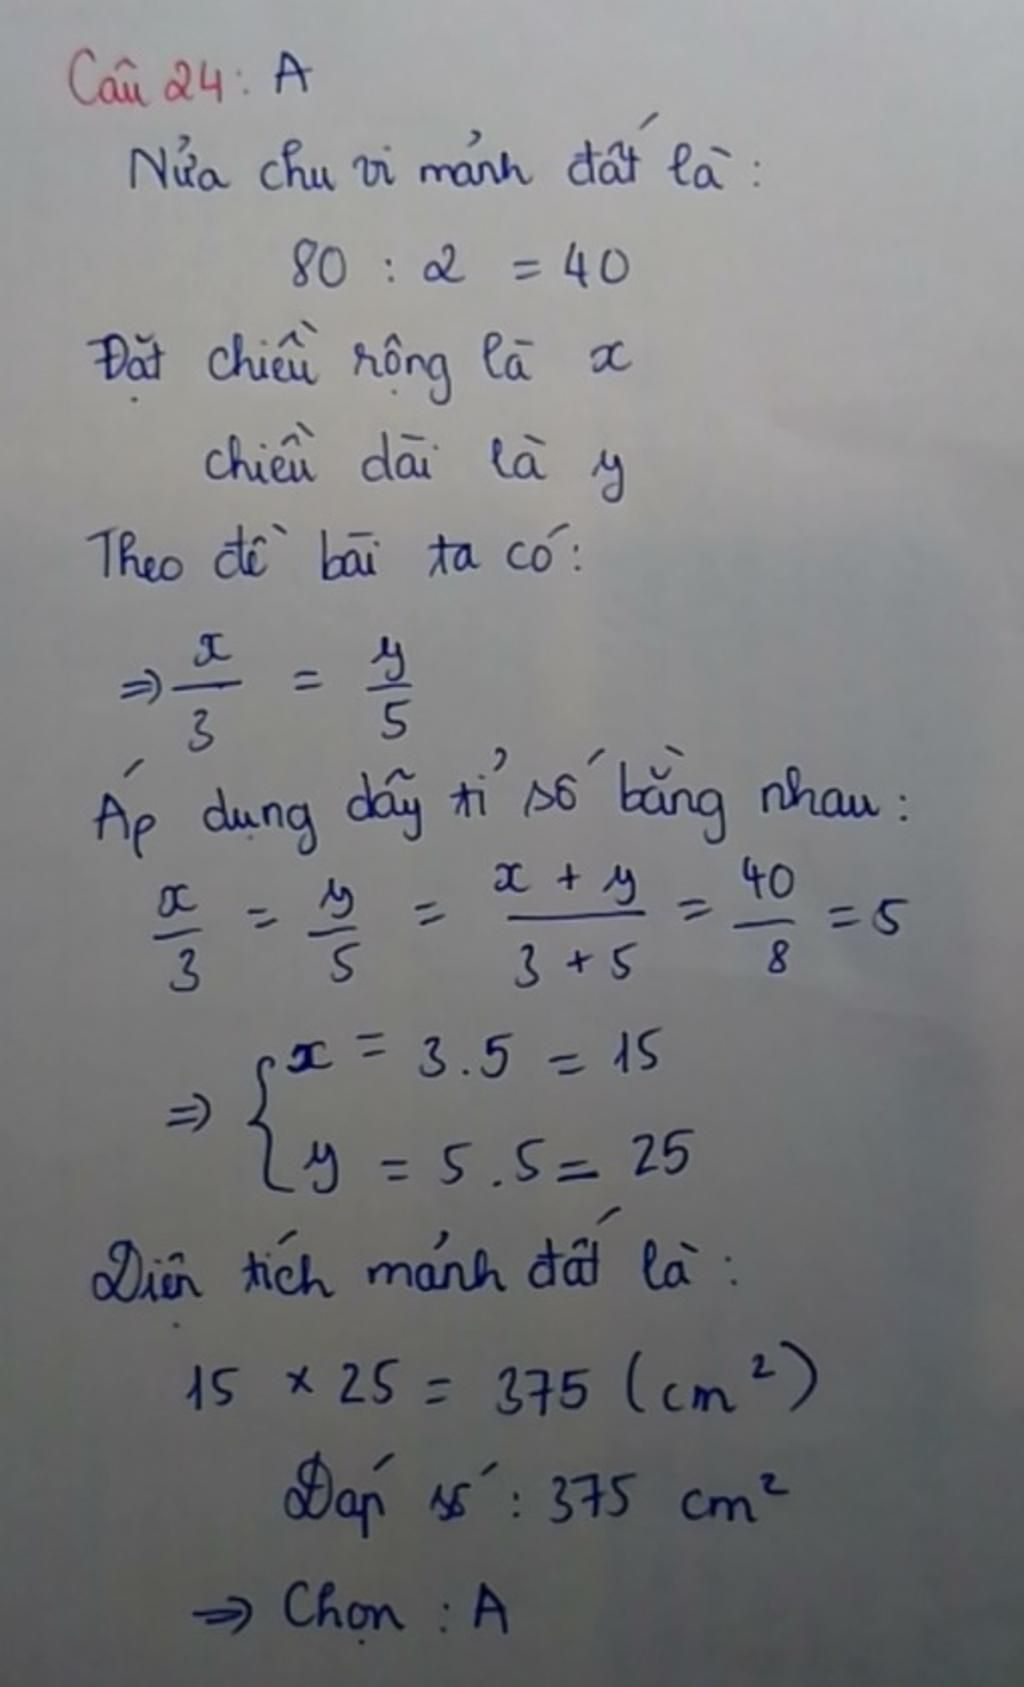 Câu 24: A
Nửa chu vi mảnh đất là:
80 : 2 = 40
Đặt chiều rộng là x
chiều dài là y
Theo đề bài ta có:
⇒ x/3 = y/5
Áp dụng dãy tỉ số bằng nhau:
x/3 = y/5 = (x + y)/(3 + 5) = 40/8 = 5
⇒ { x = 3.5 = 15
y = 5.5 = 25
Diện tích mảnh đất là:
15 × 25 = 375 (cm²)
Đáp số: 375 cm²
⇒ Chọn : A